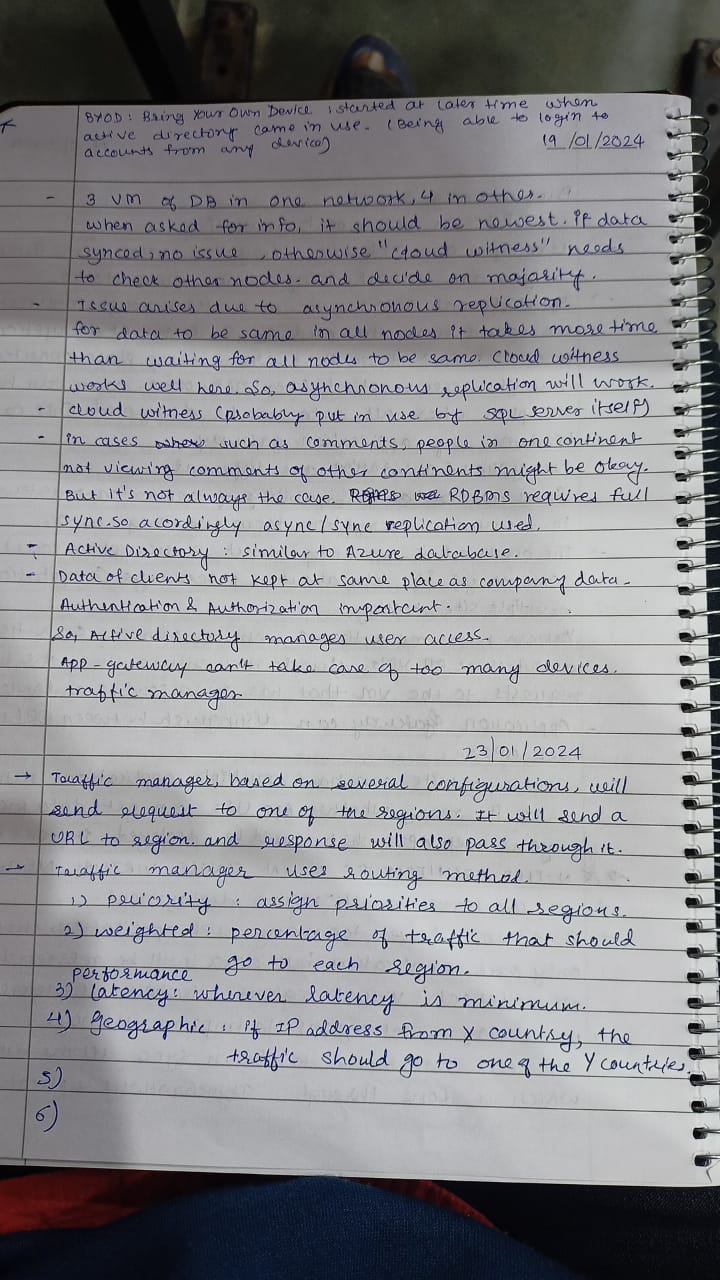 BYOD: Bring Your Own Device : started at later time when
active directory came in use. (Being able to login to
accounts from any device)
19/01/2024
- 3 VM of DB in one network, 4 in other.
when asked for info, it should be newest. if data
synced, no issue, otherwise "cloud witness" needs
to check other nodes. and decide on majority.
- Issue arises due to asynchronous replication.
for data to be same in all nodes it takes more time
than waiting for all nodes to be same. Cloud witness
works well here. So, asynchronous replication will work.
- cloud witness (probably put in use by SQL server itself)
- in cases where such as comments, people in one continent
not viewing comments of other continents might be okay.
But it's not always the case. RDBMS requires full
sync. so acordingly async/sync replication used.
- Active Directory : similar to Azure database.
- Data of clients not kept at same place as company data.
Authentication & Authorization important.
So, Active directory manages user access.
App-gateway can't take care of too many devices.
traffic manager
23/01/2024
→ Traffic manager, based on several configurations, will
send request to one of the regions. It will send a
URL to region. and response will also pass through it.
→ Traffic manager uses routing method.
1) priority : assign priorities to all regions.
2) weighted : percentage of traffic that should
go to each region.
performance
3) latency : wherever latency is minimum.
4) Geographic : if IP address from X country, the
traffic should go to one of the Y countries.
5)
6)